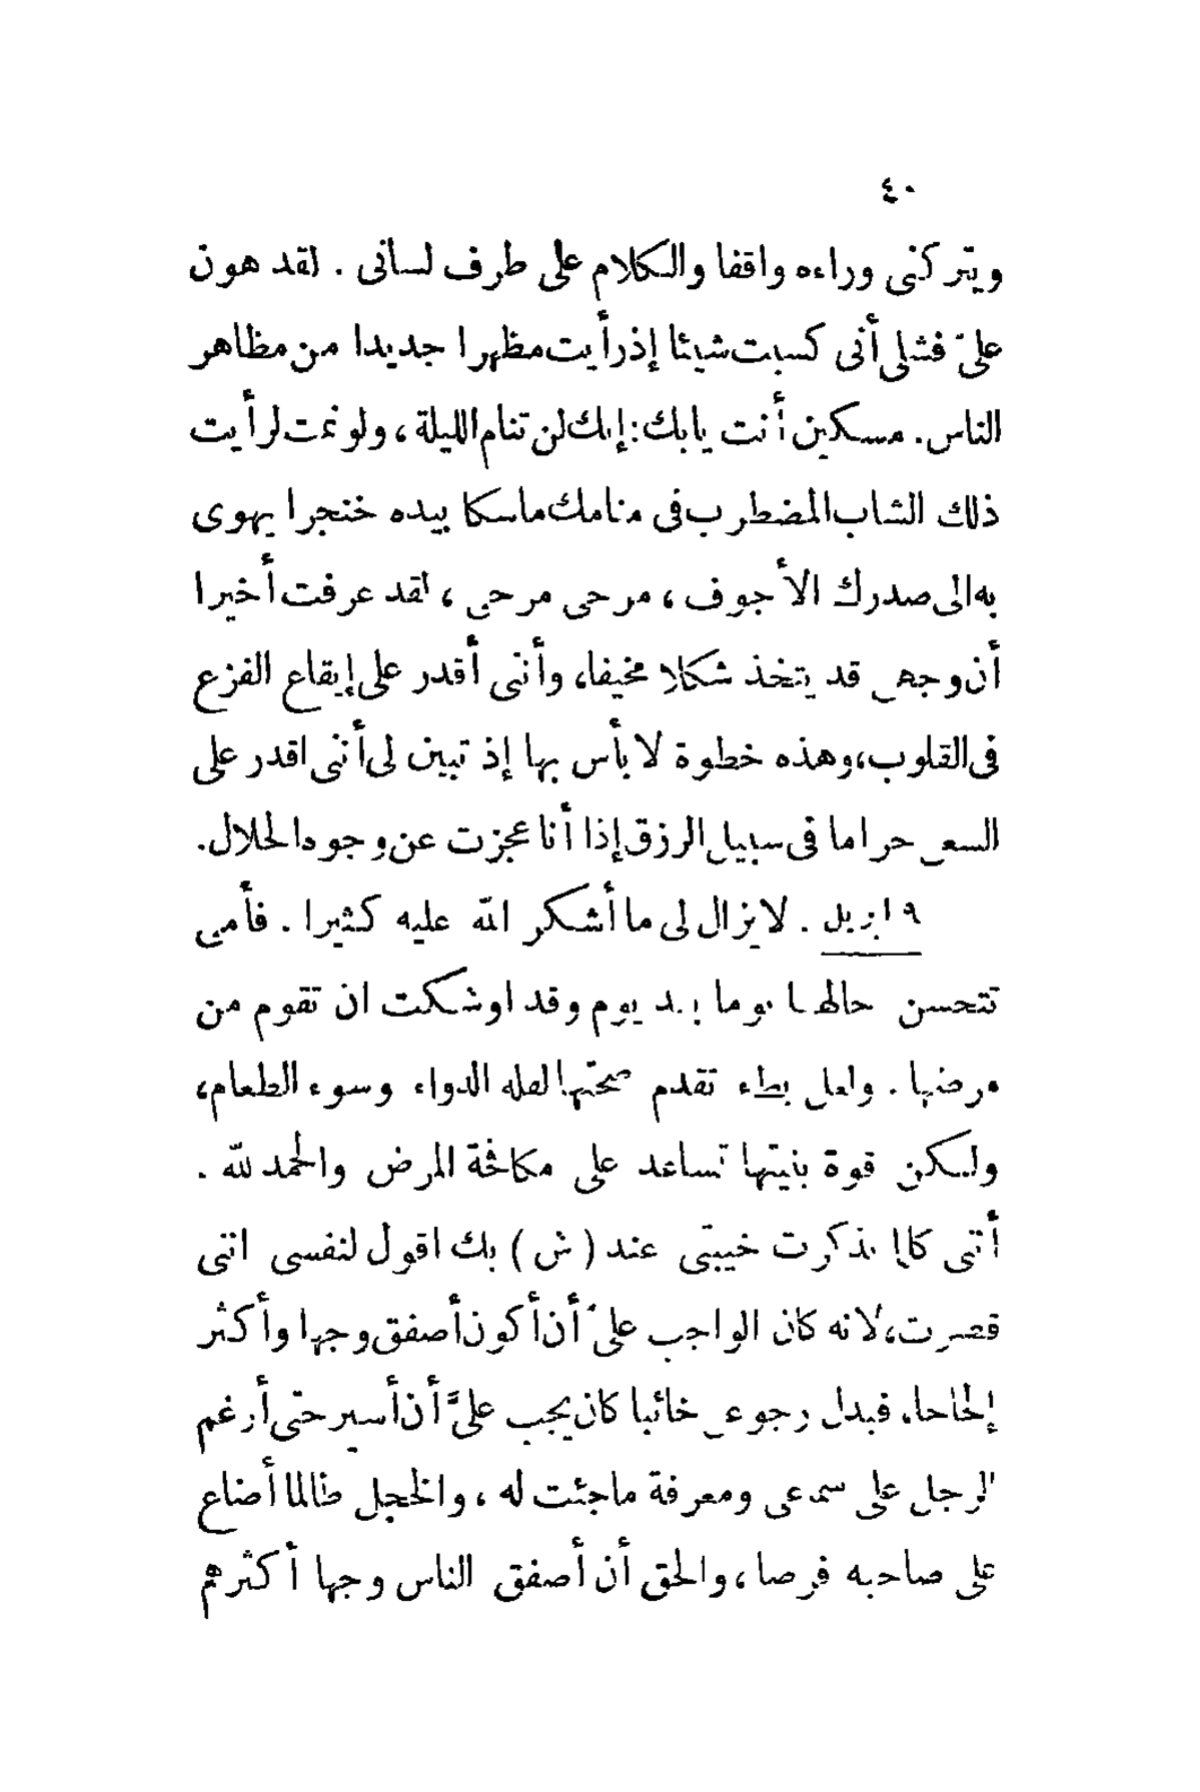 ٤٠
ويتركنى وراءه واقفا والكلام على طرف لسانى . لقد هون
علىّ فشلى أنى كسبت شيئا إذ رأيت مظهرا جديدا من مظاهر
الناس. مسكين أنت يا بك: إنك لن تنام الليلة ، ولو نمت لرأيت
ذلك الشاب المضطرب فى منامك ماسكا بيده خنجرا يهوى
به الى صدرك الأجوف ، مرحى مرحى ، لقد عرفت أخيرا
أن وجهى قد يتخذ شكلا مخيفا، وأننى أقدر على إيقاع الفزع
فى القلوب، وهذه خطوة لا بأس بها إذ تبين لى أننى اقدر على
السعى حراما فى سبيل الرزق إذا أنا عجزت عن وجوه الحلال.
٩ ابريل . لا يزال لى ما أشكر الله عليه كثيرا . فأمى
تتحسن حالها يوما بعد يوم وقد اوشكت ان تقوم من
مرضها . ولعل بطء تقدم صحتها لقلة الدواء وسوء الطعام،
ولكن قوة بنيتها تساعد على مكافحة المرض والحمد لله .
أننى كلما تذكرت خيبتى عند ( ش ) بك اقول لنفسى اننى
قصرت، لانه كان الواجب علىّ أن أكون أصفق وجها وأكثر
إلحاحا، فبدل رجوعى خائبا كان يجب علىَّ أن أسير حتى أرغم
الرجل على سمعى ومعرفة ما جئت له ، والخجل طالما أضاع
على صاحبه فرصا ، والحق أن أصفق الناس وجها أكثرهم